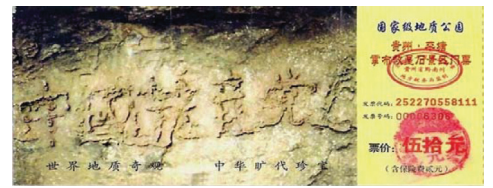 中國共产党
世界地质奇观 中华旷代珍宝
国家级地质公园
贵州·平塘
掌布藏字石景区门票
发票代码:252270558111
发票号码:00008306
票价:伍拾元
(含保险费贰元)